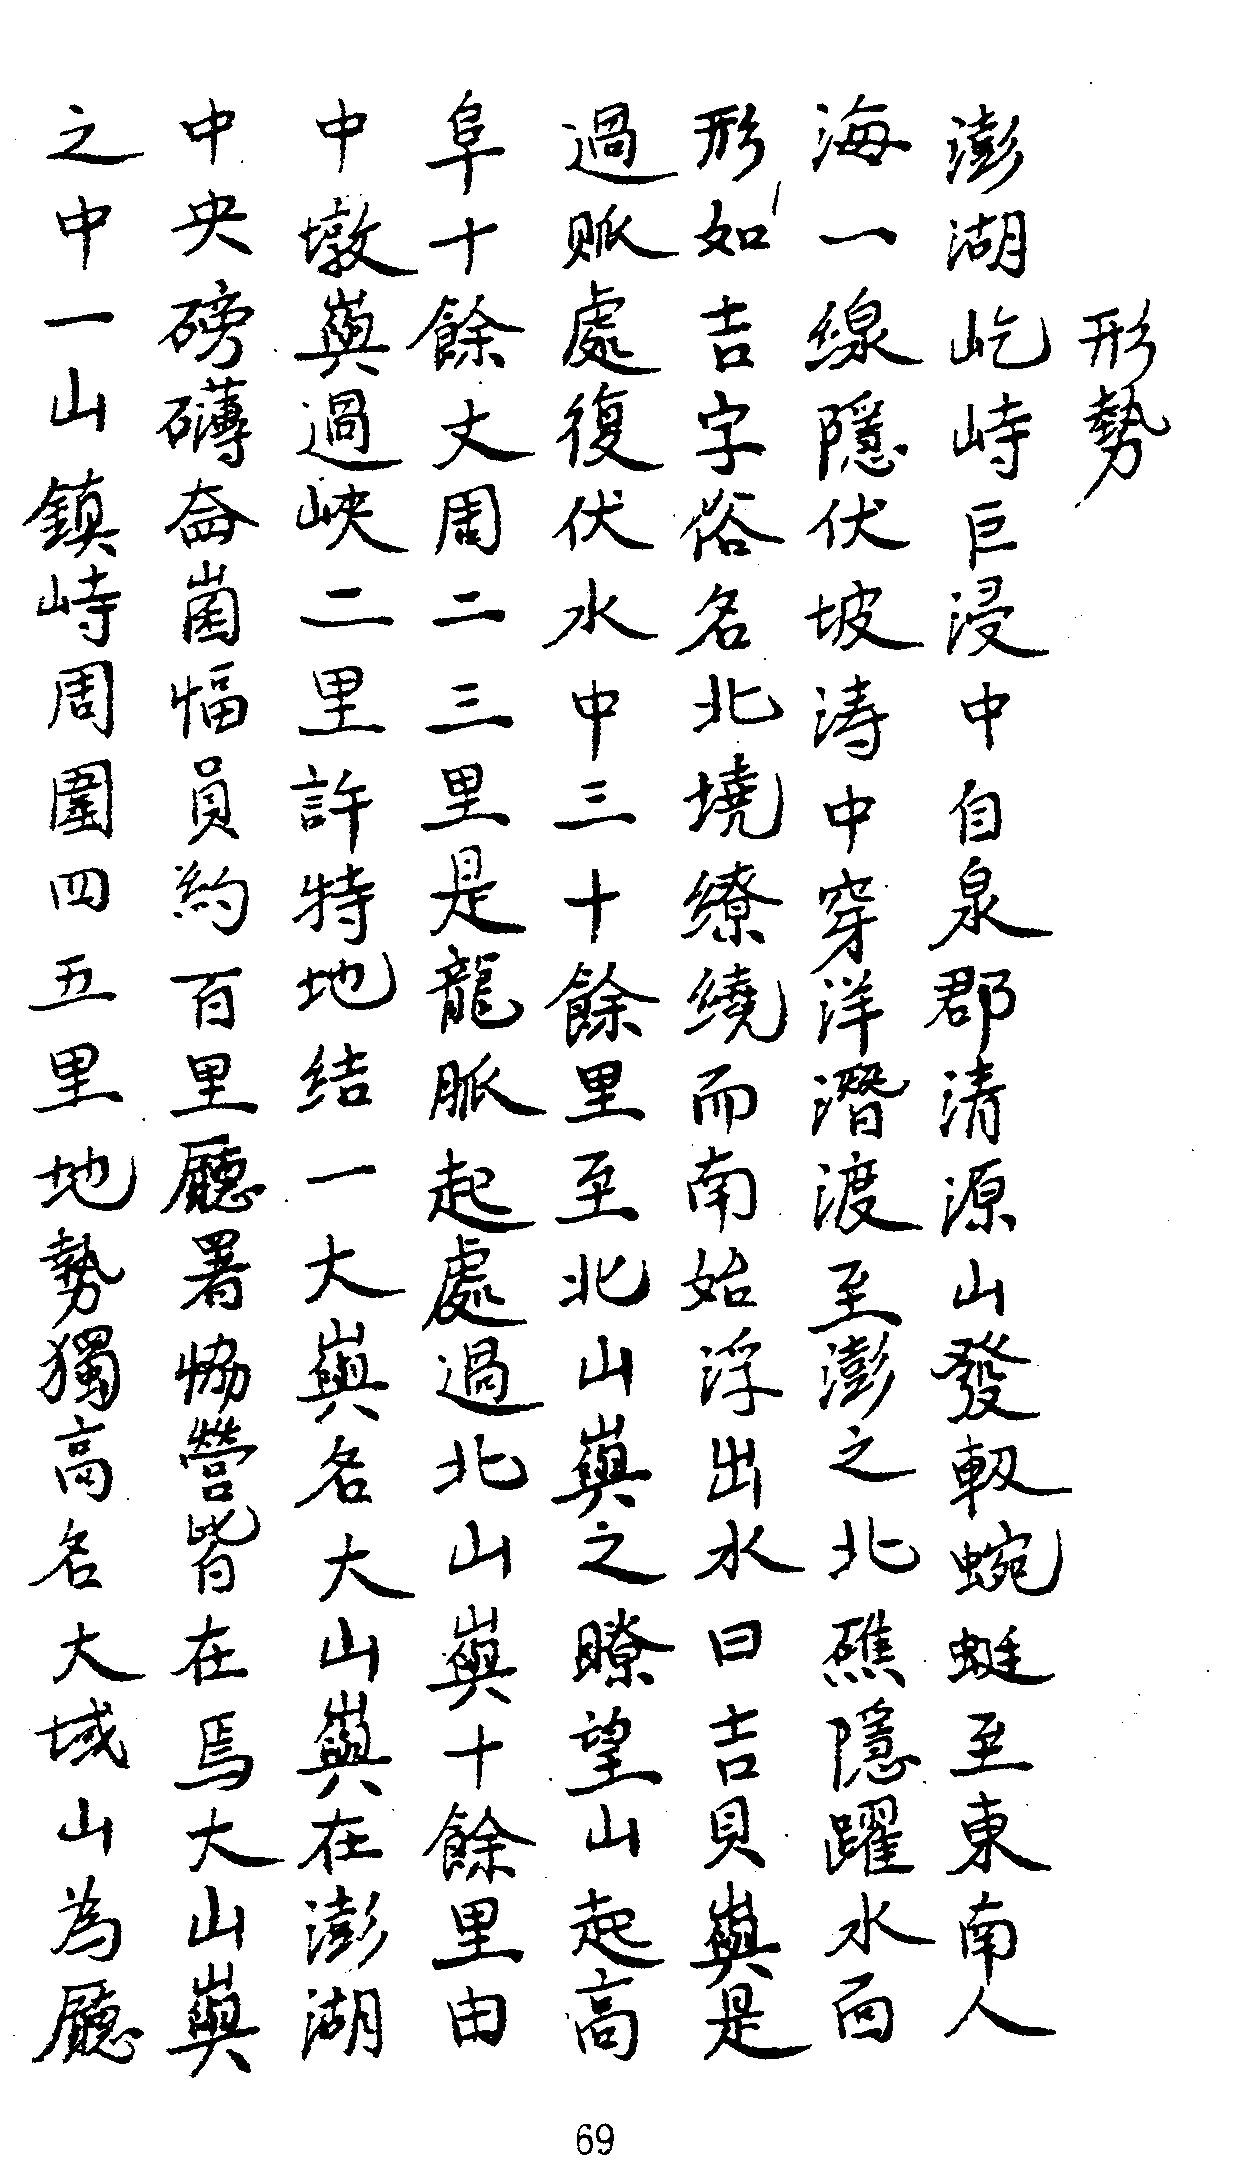 形勢
澎湖屹峙巨浸中自泉郡清源山發軔蜿蜒至東南人
海一線隱伏坡涛中穿洋潛渡至澎之北礁隱躍水面
形如吉字俗名北墝繚繞而南始浮出水曰吉貝嶼是
過脈處復伏水中三十餘里至北山嶼之瞭望山起高
阜十餘丈周二三里是龍脈起處過北山嶼十餘里由
中墩嶼過峽二里許特地结一大嶼名大山嶼在澎湖
中央磅礴畚崗幅員約百里廳署協營皆在焉大山嶼
之中一山鎮峙周圍四五里地勢獨高名大域山為廳
69